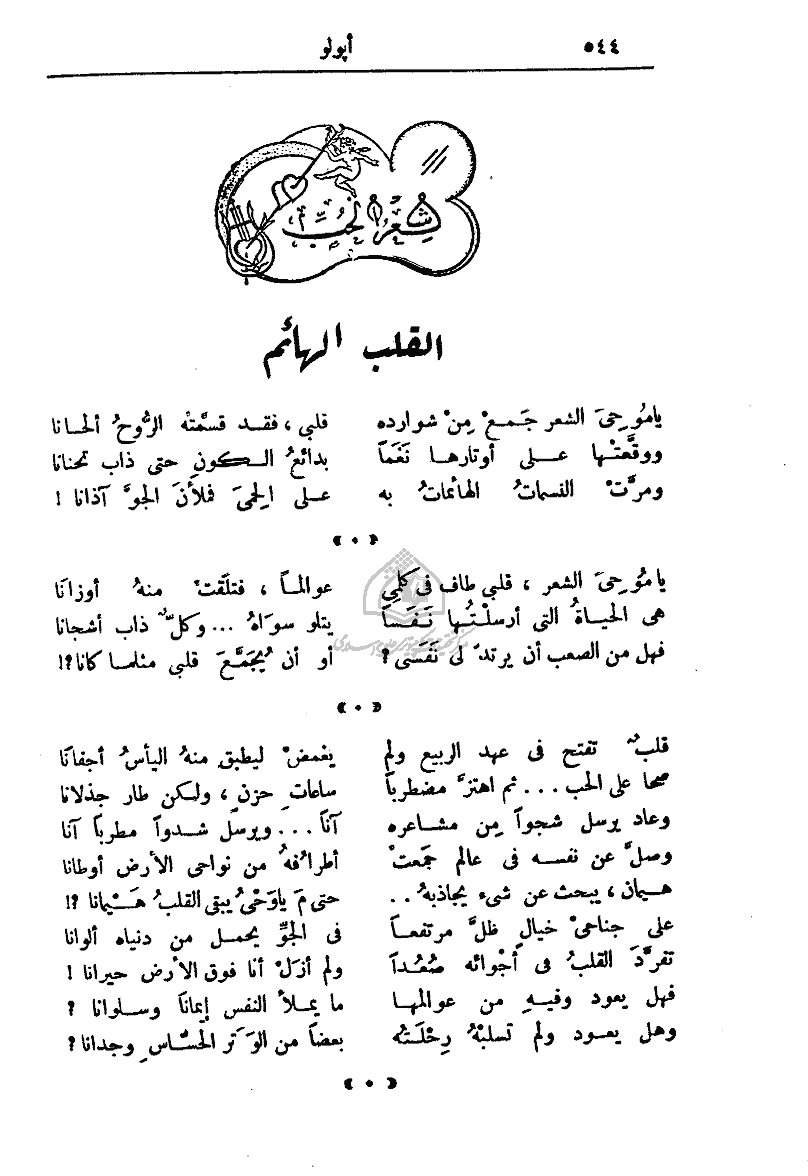 ٥٤٤
أپولو
شِعْرُ الحُبِّ
القلب الهائم
يا مُوحِىَ الشعر جَمعْ مِنْ شوارده قلبى ، فقد قسمْتْه الرُّوحُ ألحانا
ووقَّعتْها على أوتارها نَغَماً بدائعُ الكونِ حتى ذاب تحنانا
ومرَّتْ النسماتُ الهائماتُ به على الحِمىَ فملأنَ الجوَّ آذانا !
يا مُوحىَ الشعر ، قلبى طاف فى كَلِمِى عوالماً ، فتلَقَّتْ منهُ أوزانَا
هى الحياةُ التى أرسلْتُها نَفَساً يتلو سواهُ ... وكلٌّ ذاب أشجانا
فهل من الصعب أن يرتدّ لى نَفَسى ؟ أو أن يُجَمَّعَ قلبى مثلما كانا ؟!
قلبٌ تفتح فى عهد الربيع ولم يغمضْ ليطبقَ منهُ اليأسُ أجفانَا
صحا على الحب ... ثم اهتزَّ مضطرباً ساعاتِ حزنٍ ، ولكن طار جذلانا
وعاد يرسل شجواً مِن مشاعره آناً ... ويرسلُ شدواً مطرباً آنا
وضلَّ عن نفسه فى عالم جمَعتْ أطرافُهُ من نواحى الأرض أوطانا
هيمان ، يبحث عن شىء يجاذبهُ .. حتى مَ يا وَحْىُ يبقى القلبُ هَيْمانا ؟!
على جناحىْ خيالٍ ظلَّ مرتفعاً فى الجوِّ يحمل من دنياه ألوانا
تفرَّدَ القلبُ فى أجْوائه صُعُداً ولم أزَلْ أنا فوق الأرض حيرانا !
فهل يعود وفيهِ من عوالمها ما يملأ النفس إيماناً وسلوانا ؟
وهل يعود ولم تسلبْهُ رِحْلَتُه بعضاً من الوَتَر الحسَّاسِ وجدانا ؟